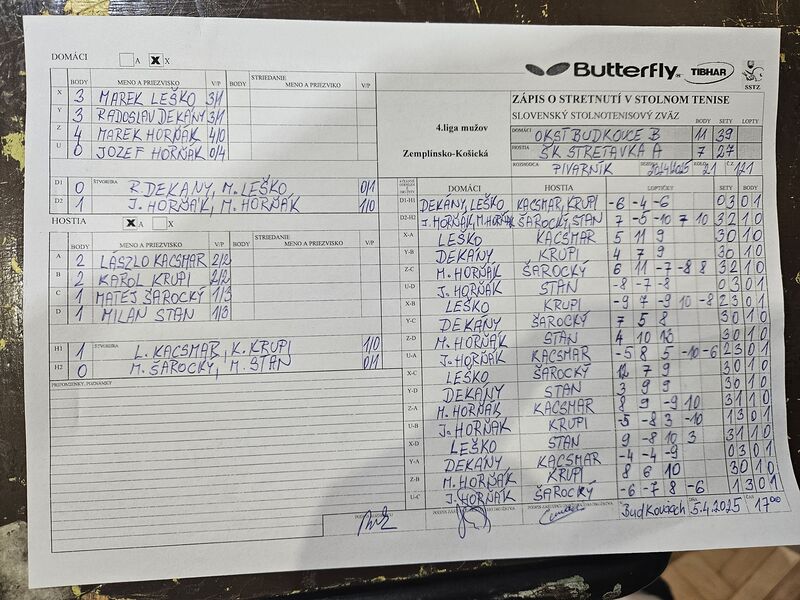 DOMÁCI A X X
BODY MENO A PRIEZVISKO V/P BODY STRIEDANIE MENO A PRIEZVISKO V/P
X 3 MAREK LEŠKO 3/1
Y 3 RADOSLAV DEKÁNY 3/1
Z 4 MAREK HORŇÁK 4/0
U 0 JOZEF HORŇÁK 0/4
D1 0 ŠTVORHRA R. DEKÁNY, M. LEŠKO 0/1
D2 1 J. HORŇÁK, M. HORŇÁK 1/0
HOSTIA X A X
BODY MENO A PRIEZVISKO V/P BODY STRIEDANIE MENO A PRIEZVISKO V/P
A 2 LÁSZLO KACSMAR 2/2
B 2 KAROL KRUPI 2/2
C 1 MATEJ ŠAROCKÝ 1/3
D 1 MILAN STAN 1/3
H1 1 ŠTVORHRA L. KACSMAR, K. KRUPI 1/0
H2 0 M. ŠAROCKÝ, M. STAN 0/1
PRIPOMIENKY, POZNÁMKY
Butterfly TIBHAR SSTZ
4.liga mužov
Zemplínsko-Košická
ZÁPIS O STRETNUTÍ V STOLNOM TENISE
SLOVENSKÝ STOLNOTENISOVÝ ZVÄZ BODY SETY LOPTY
DOMÁCI OKST BUDKOVCE B 11 39
HOSTIA ŠK STRETAVKA A 7 27
ROZHODCA PIVARNÍK SEZÓNA 2024/2025 KOLO 21 Č.Z. 121
DOMÁCI HOSTIA LOPTIČKY SETY BODY
D1-H1 DEKÁNY, LEŠKO KACSMAR, KRUPI -6 -4 -6 0 3 0 1
D2-H2 J. HORŇÁK, M. HORŇÁK ŠAROCKÝ, STAN 7 -5 -10 7 10 3 2 1 0
X-A LEŠKO KACSMAR 5 11 9 3 0 1 0
Y-B DEKÁNY KRUPI 4 7 9 3 0 1 0
Z-C M. HORŇÁK ŠAROCKÝ 6 11 -7 -8 8 3 2 1 0
U-D J. HORŇÁK STAN -8 -7 -8 0 3 0 1
X-B LEŠKO KRUPI -9 7 -9 10 -8 2 3 0 1
Y-C DEKÁNY ŠAROCKÝ 7 5 8 3 0 1 0
Z-D M. HORŇÁK STAN 4 10 13 3 0 1 0
U-A J. HORŇÁK KACSMAR -5 8 5 -10 -6 2 3 0 1
X-C LEŠKO ŠAROCKÝ 12 7 9 3 0 1 0
Y-D DEKÁNY STAN 3 9 9 3 0 1 0
Z-A M. HORŇÁK KACSMAR 8 9 -9 10 3 1 1 0
U-B J. HORŇÁK KRUPI -5 -8 3 -10 1 3 0 1
X-D LEŠKO STAN 9 -8 10 3 3 1 1 0
Y-A DEKÁNY KACSMAR -4 -4 -9 0 3 0 1
Z-B M. HORŇÁK KRUPI 8 6 10 3 0 1 0
U-C J. HORŇÁK ŠAROCKÝ -6 -7 8 -6 1 3 0 1
Budkovciach DŇA 5.4.2025 ČAS 17 00